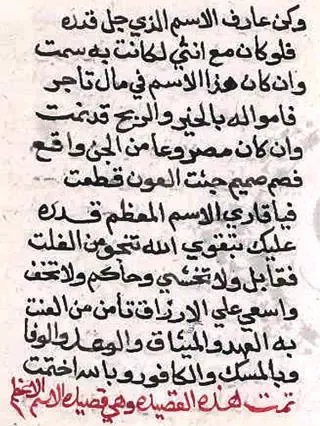 وكن عارف الاسم الذي جل قدره
فلو كان مع انثي لكانت به سمت
وان كان هذا الاسم في مال تاجر
فامواله بالخير والربح قد نمت
وان كان مصروعا من الجن واقع
فصم صميم جئت العون قطعت
فيا قاري الاسم المعظم قدره
عليك بتقوي الله تنجو من الفلت
فقابل ولا تخشي وحاكم ولا تخف
واسعي علي الارزاق تامن من العنت
به العهد والميثاق والوعد والوفا
وبالمسك والكافور وباسـ اختمت
تمت هذه القصيده وهي قصيده الاسم الاعظم